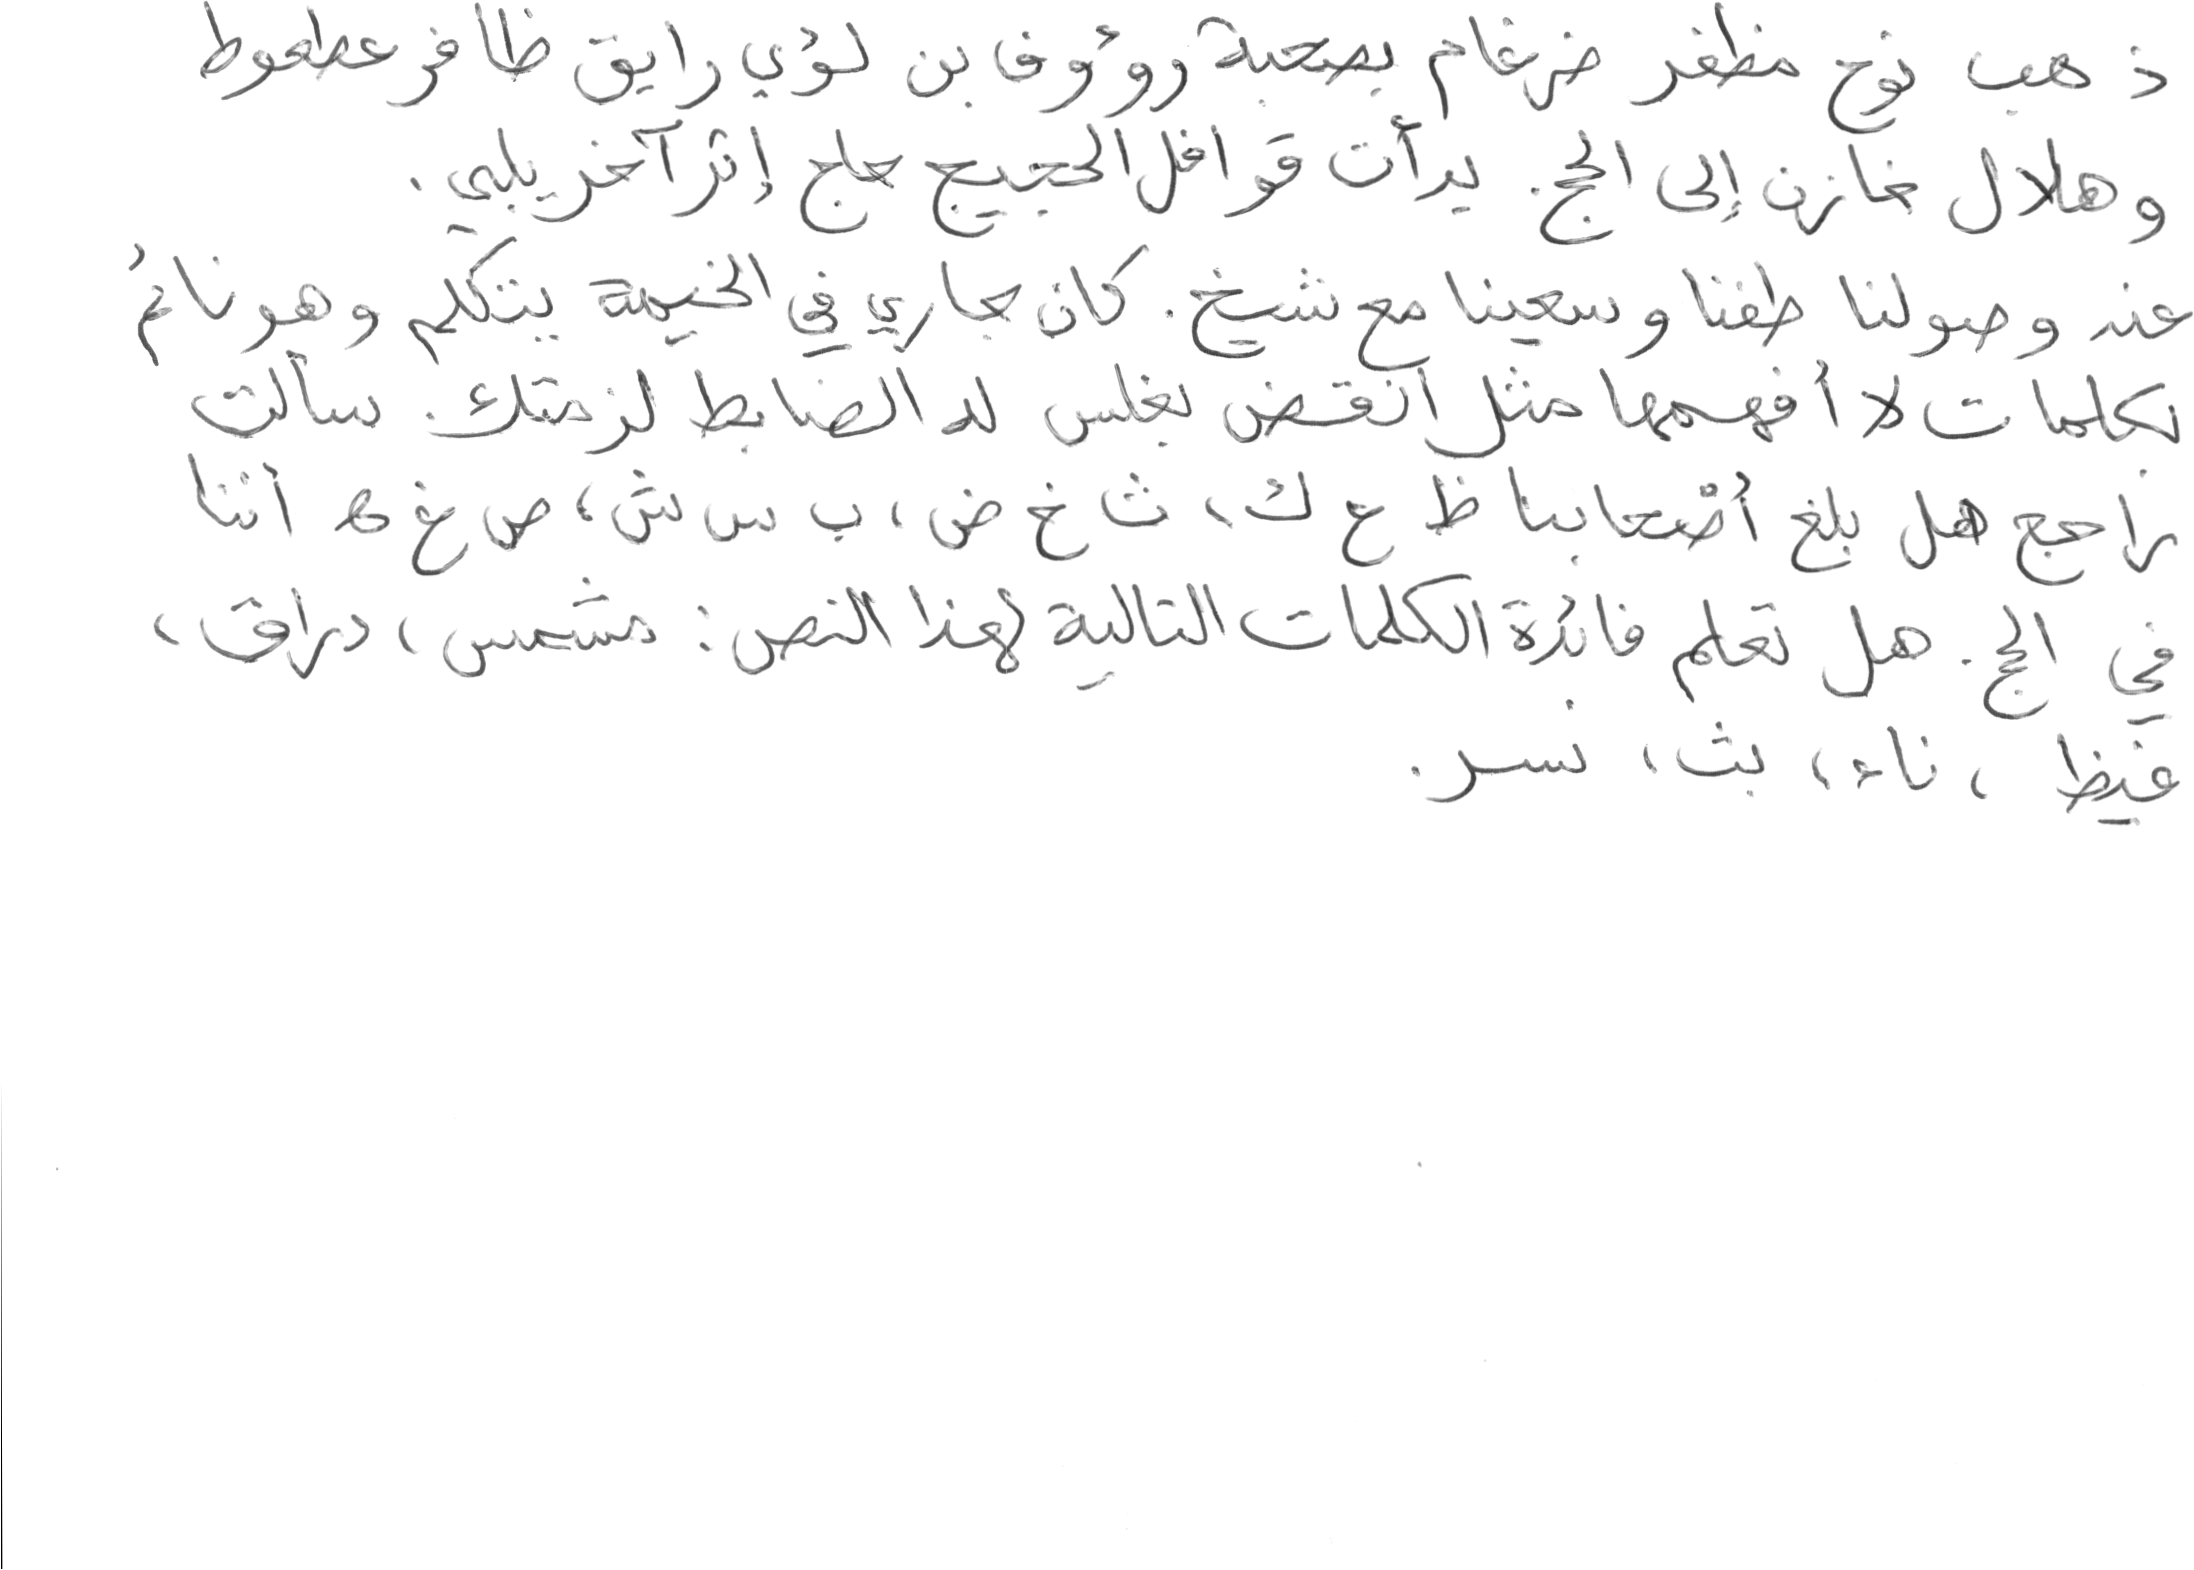 ذهب نوح مظفر ضرغام بصحبة رووؤف بن لؤي رايق ظافر عطعوط
وهلال خازن إلى الحج. بدأت قوافل الحجيج حاج إثر آخر يلبي.
عند وصولنا طفنا وسعينا مع شيخ. كان جاري في الخيمة يتكلم وهو نائم
بكلمات لا أفهمها مثل انقض بغلس لد الضابط لزحتك. سألت
راجح هل بلغ أصحابنا ظ ع ك، ث خ ض، ب س ش، ص غ ط أننا
في الحج. هل تعلم فائدة الكلمات التالية لهذا النص: مشمس، دراق،
غيظ، ناء، بث، نسر.